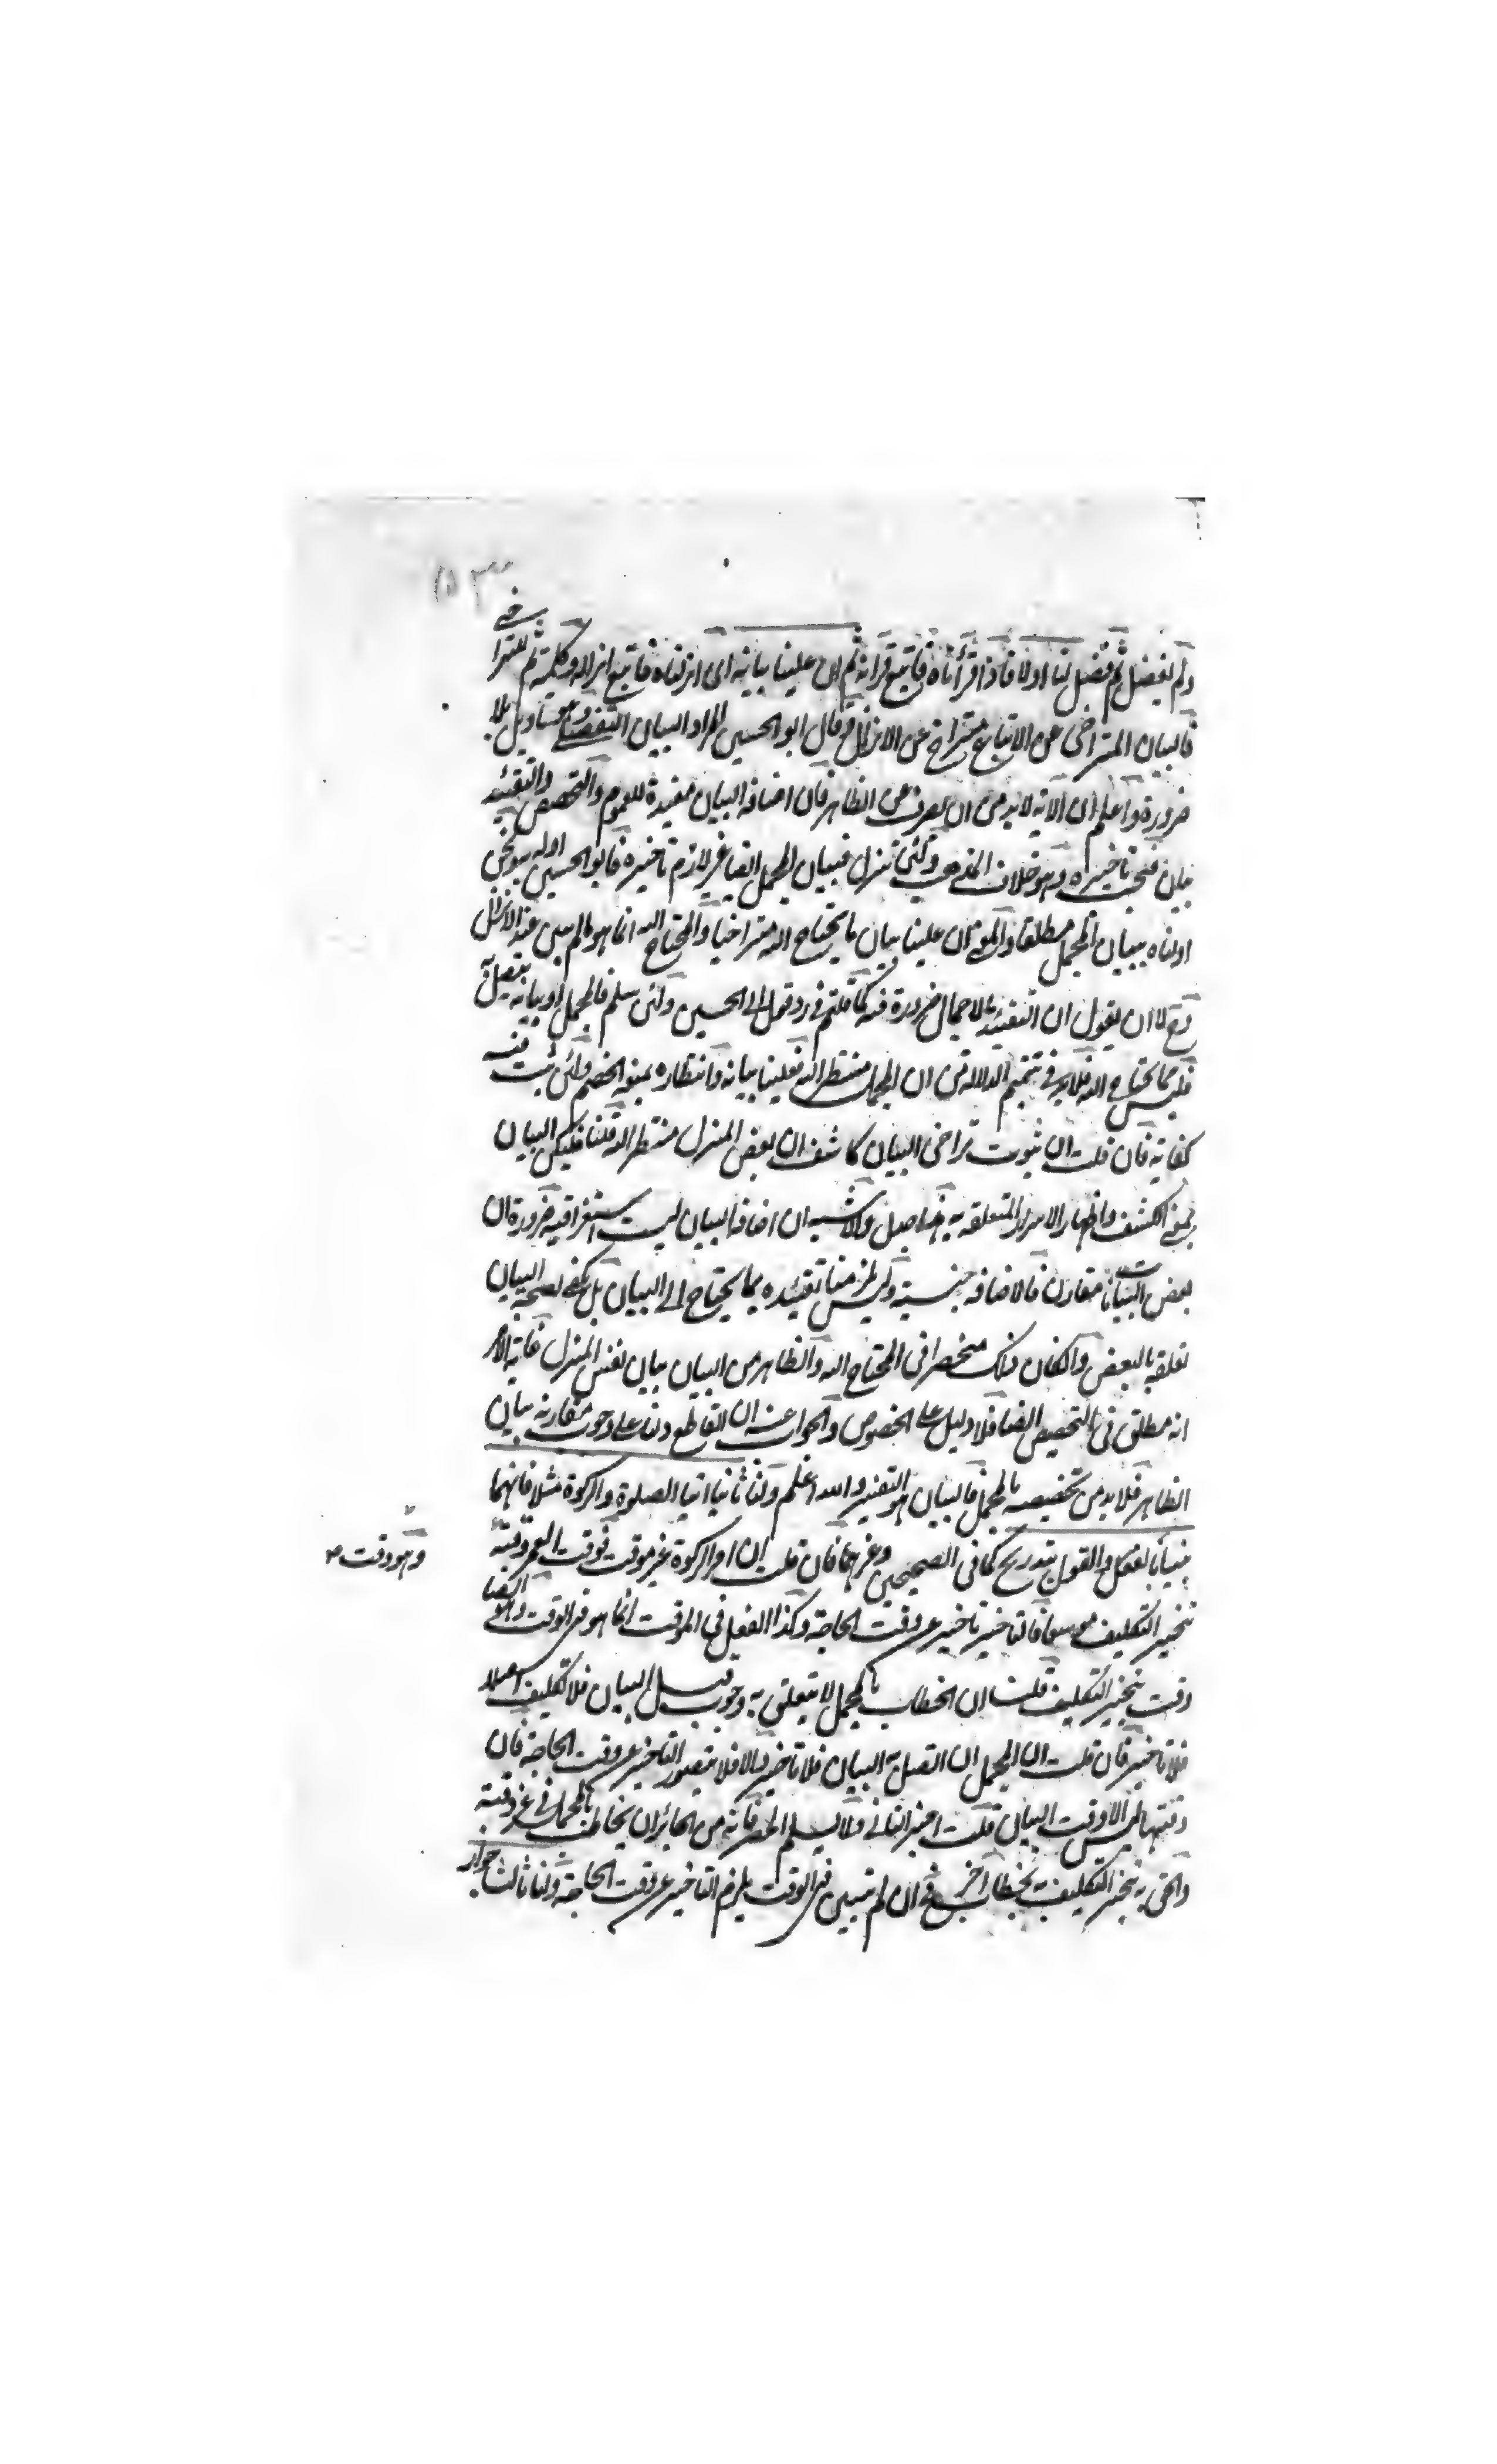 ولم يفصل ثم فصل لنا اولا فاذا قرأناه فاتبع قرانه ثم ان علينا بيانه اى انزلناه فاتبع انزاله وكلمة ثم للتراخى
فالبيان المتراخى عن الاتباع متراخ عن الانزال قال ابو الحسين المراد البيان التفصيلى وهو تاويل بلا
ضرورة واعلم ان الاية لا بد من ان يصرف عن الظاهر فان اضافة البيان مفيدة للعموم والتخصيص والتقييد
بيان فيجب تاخيره وهو خلاف المذهب ولئن تنزل فبيان المجمل ايضا غير لازم تاخيره فابو الحسين اوله ونحن
اولناه ببيان المجمل مطلقا والمعنى ان علينا بيان ما يحتاج اليه متراخيا والمحتاج اليه انما هو ما لم يبين عند الانزال
لا ان يقول ان التقييد بالاجمال ضرورة فيه كما قلتم فى رد قول ابى الحسين ولئن سلم فالمجمل او بيانه يتصل به
فليس مما يحتاج اليه فلا بد فى تتميم الدلالة من ان المجمل منتظر اليه فعلينا بيانه وانتظاره يمنعه الخصم ولئن ثبت ففيه
كفاية فان قلت ان ثبوت تراخى البيان كاشف ان بعض المنزل منتظر اليه قلنا فليكن البيان
بمعنى الكشف واظهار الاسرار المتعلقة به تفاصيل والاشبه ان اضافة البيان ليست استغراقية ضرورة ان
بعض البيانات مقارن فالاضافة جنسية وليس يلزم منا تقييده بما يحتاج الى البيان بل يكفى لصحة البيان
تعلقه بالبعض وان كان ذلك منحصرا فى المحتاج اليه والظاهر من البيان بيان نفس المنزل غاية الامر
انه مطلق فى التخصيص ايضا فلا دليل على الخصوص والجواب عنه ان القاطع دلنا على وجوب مقارنة بيان
الظاهر فلا بد من تخصيصه بالمجمل فالبيان هو التفسير والله اعلم ولنا ثانيا اتيا الصلوة والزكوة مثلا فانهما
بينا بالفعل والقول بتدريج كما فى الصحيحين وغيرهما فان قلت ان امر الزكوة غير موقت فوقت العمر وقته
وهو وقت
تنجيز التكليف موسعا فالتاخير تاخير عن وقت الحاجة وكذا الفعل فى الموقت انما هو فى الوقت وهو ايضا
وقت تنجيز التكليف قلت ان الخطاب بالمجمل لا يتعلق به وجوب قبل البيان فلا تكليف اصلا
فلا تاخير فان قلت ان المجمل ان اتصل به البيان فلا تاخير والا فلا يتصور التاخير عن وقت الحاجة فان
وقتها ليس الا وقت البيان قلت اختير الثانى ولا يسلم الحصر فانه من الجائز ان يخاطب بالمجمل فى غير وقته
واتى به تنجيز التكليف به بخطاب اخر ان لم تبين فى الوقت يلزم التاخير عن وقت الحاجة ولنا ثالثا جواز